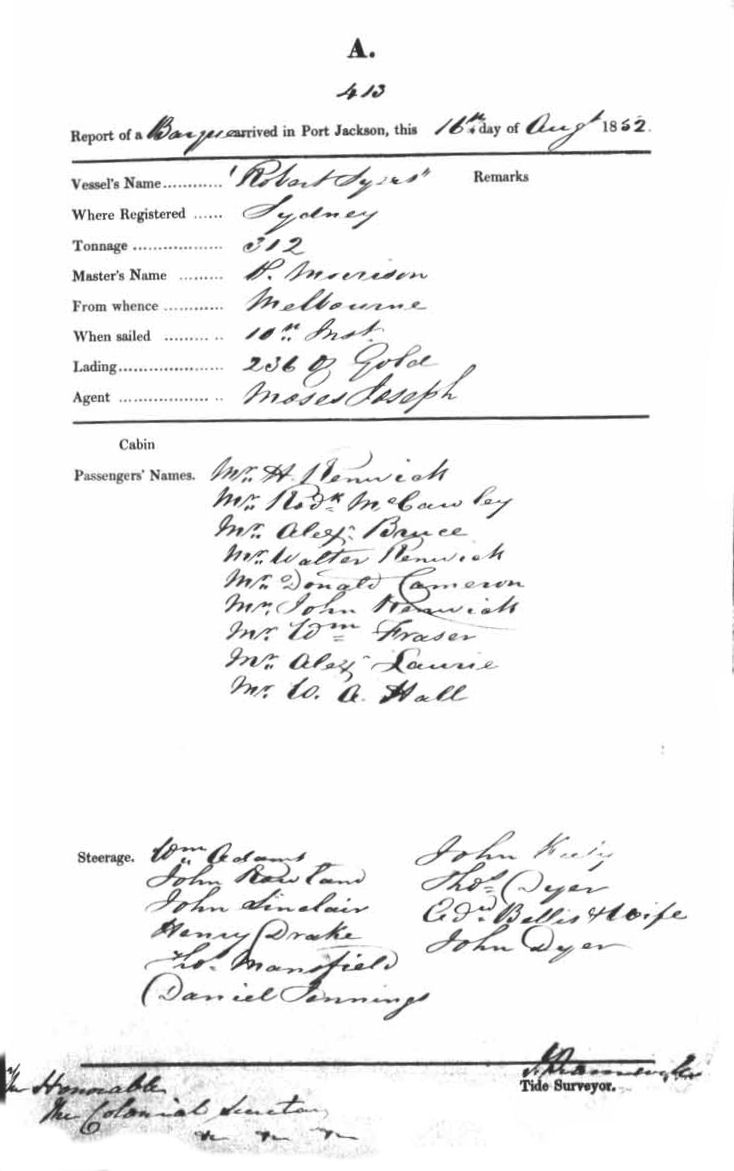 A.
413
Report of a Barque arrived in Port Jackson, this 16th day of Augt 1852.
Vessel's Name............ "Robert Syers" Remarks
Where Registered ...... Sydney
Tonnage .................. 312
Master's Name ......... Morrison
From whence ............ Melbourne
When sailed ......... .. 10th Inst.
Lading..................... 236 oz Gold
Agent .................. .. Moses Joseph
Cabin
Passengers' Names. Mr. H. Renwick
Mr. Rodk McCawley
Mr. Alexr. Bruce
Mr. Walter Renwick
Mr. Donald Cameron
Mr. John Renwick
Mr. Wm Fraser
Mr. Alexr Laurie
Mr. W. A. Hall
Steerage. Wm Adams
John Rowland
John Sinclair
Henry Drake
Tho. Mansfield
Daniel Jennings
John
Thos Dyer
Edwd. Bellis & Wife
John Dyer
Tide Surveyor.
The Honorable
The Colonial Secretary